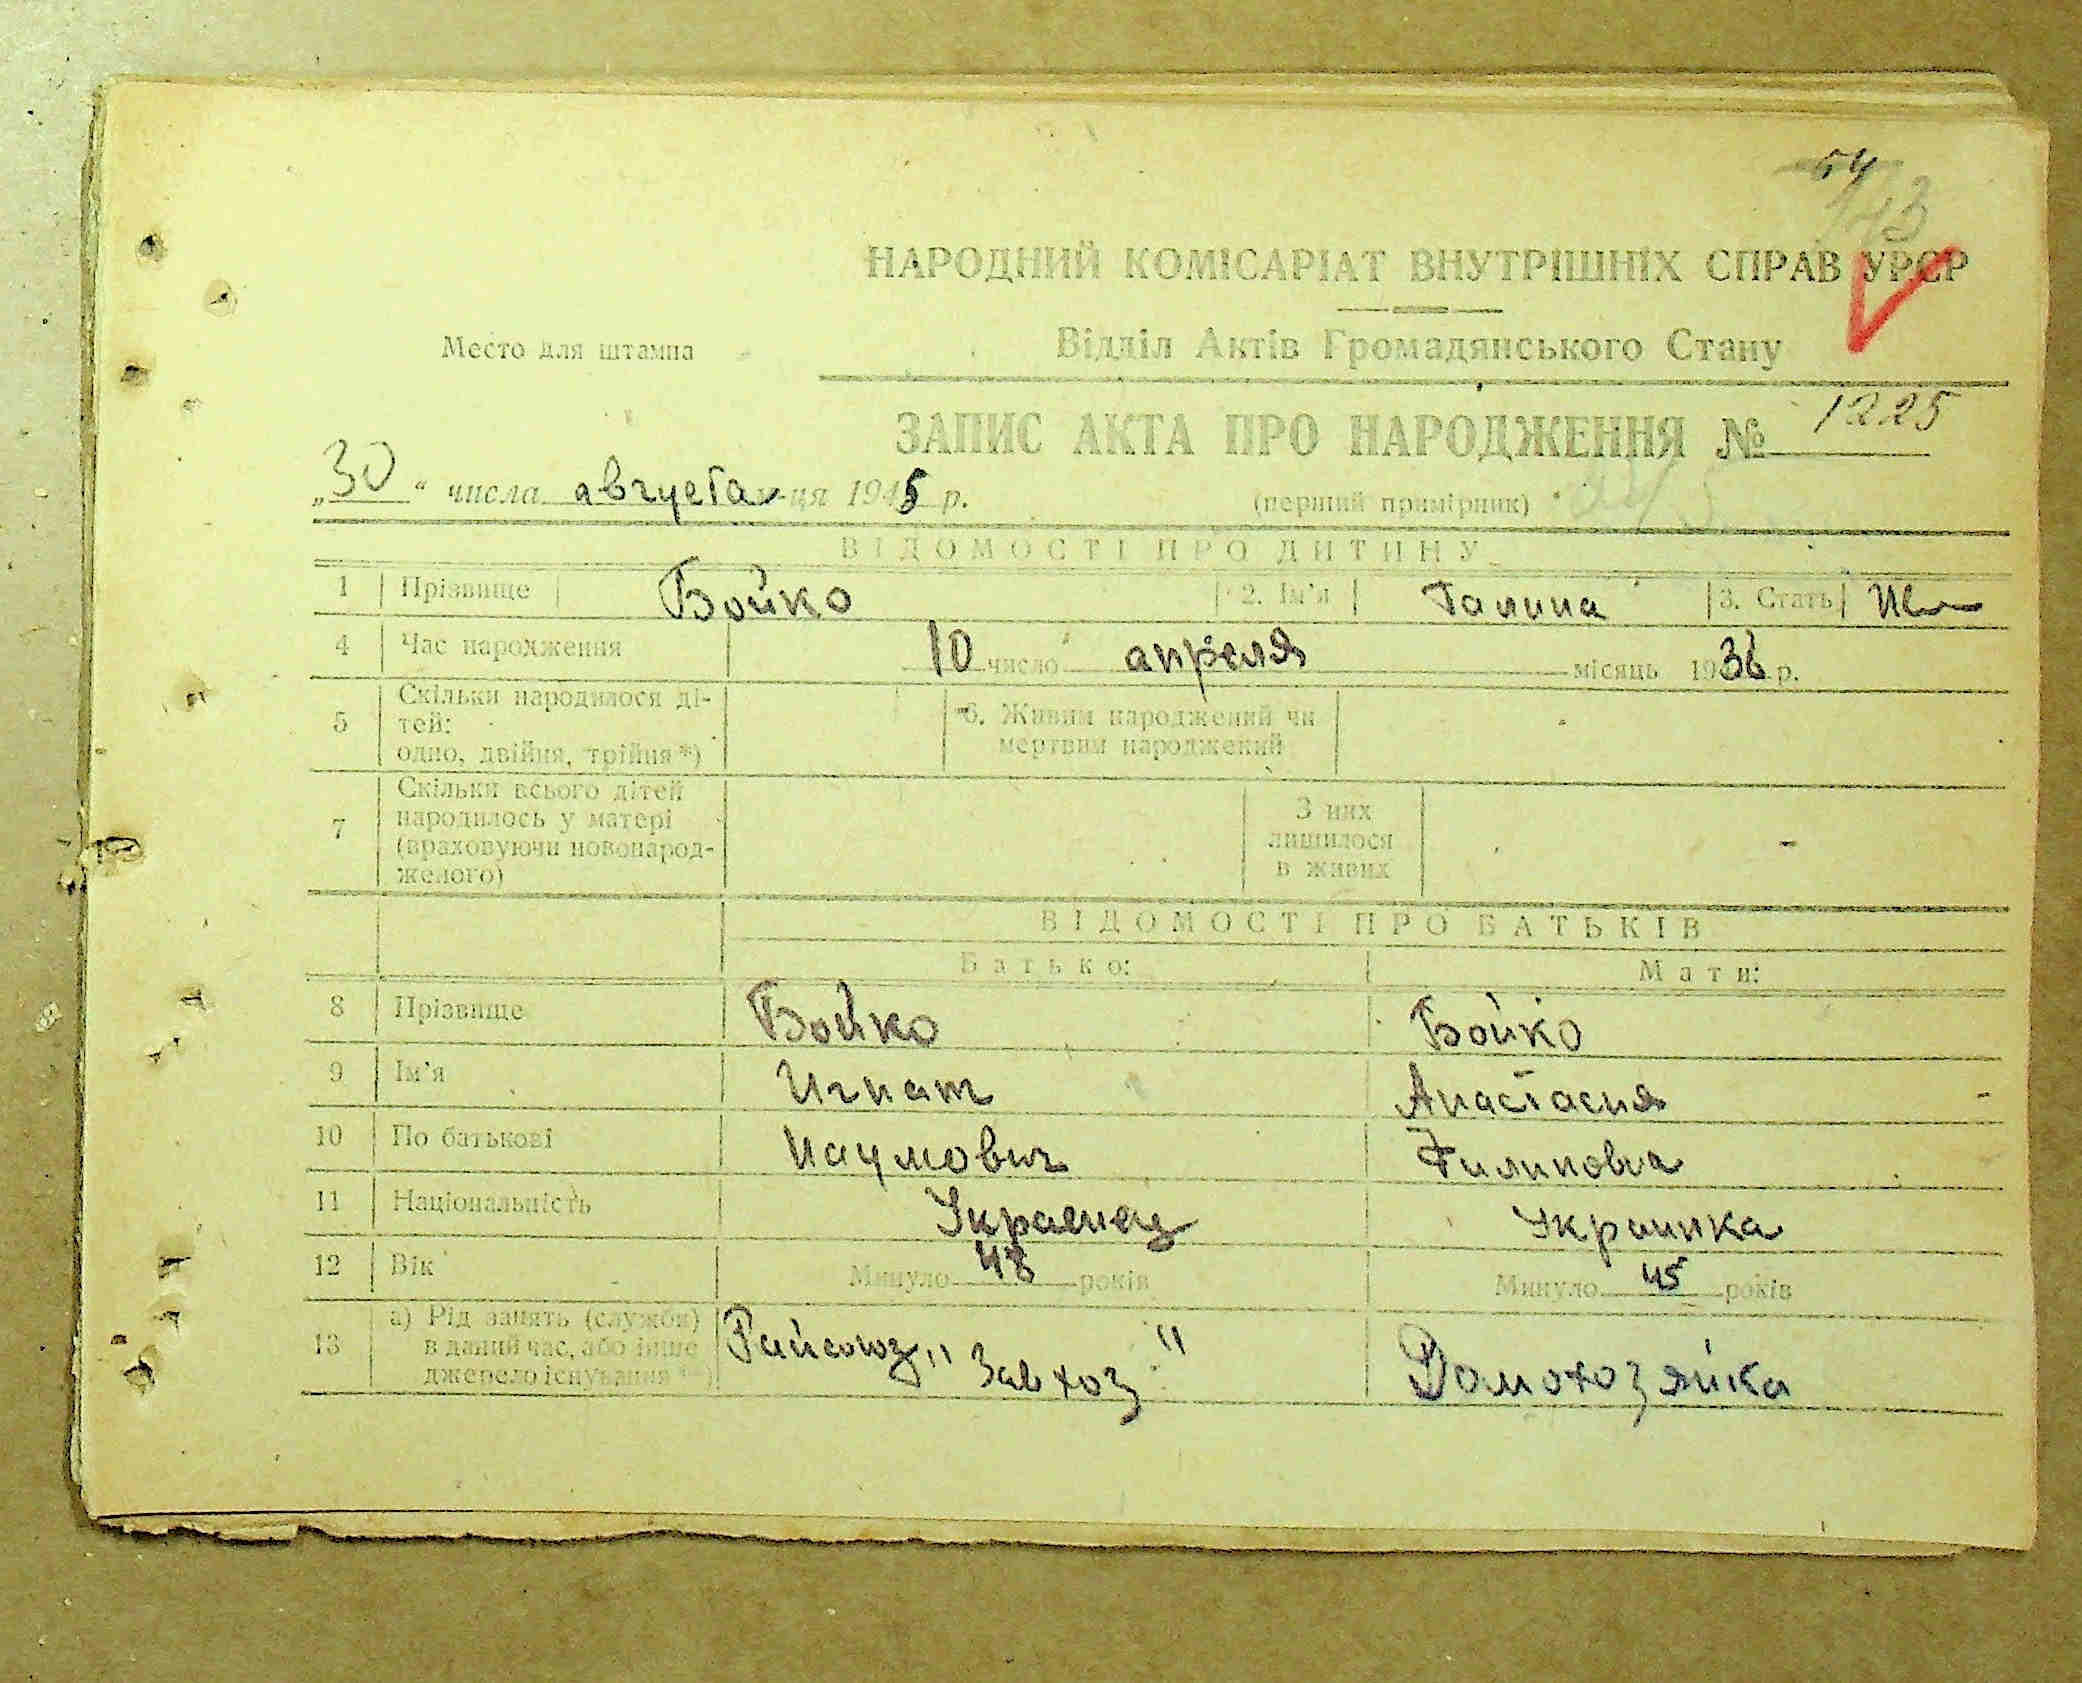 54
143
НАРОДНИЙ КОМІСАРІАТ ВНУТРІШНІХ СПРАВ УРСР
Место для штампа
Відділ Актів Громадянського Стану
ЗАПИС АКТА ПРО НАРОДЖЕННЯ № 1225
„30“ числа августа м-ця 1945 р.
(перший примірник)
ВІДОМОСТІ ПРО ДИТИНУ
1 Прізвище Бойко 2. Ім'я Галина 3. Стать Ж
4 Час народження 10 число апреля місяць 1936 р.
5 Скільки народилося ді-
тей:
одно, двійня, трійня*)
6. Живим народжений чи
мертвим народжений
7 Скільки всього дітей
народилось у матері
(враховуючи новонарод-
женого)
З них
лишилося
в живих
ВІДОМОСТІ ПРО БАТЬКІВ
Батько: Мати:
8 Прізвище Бойко Бойко
9 Ім'я Игнат Анастасия
10 По батькові Наумович Филиповна
11 Національність Украинец Украинка
12 Вік Минуло 48 років Минуло 45 років
13 а) Рід занять (служби)
в даний час, або інше
джерело існування**)
Райсоюз „Завхоз" Домохозяйка